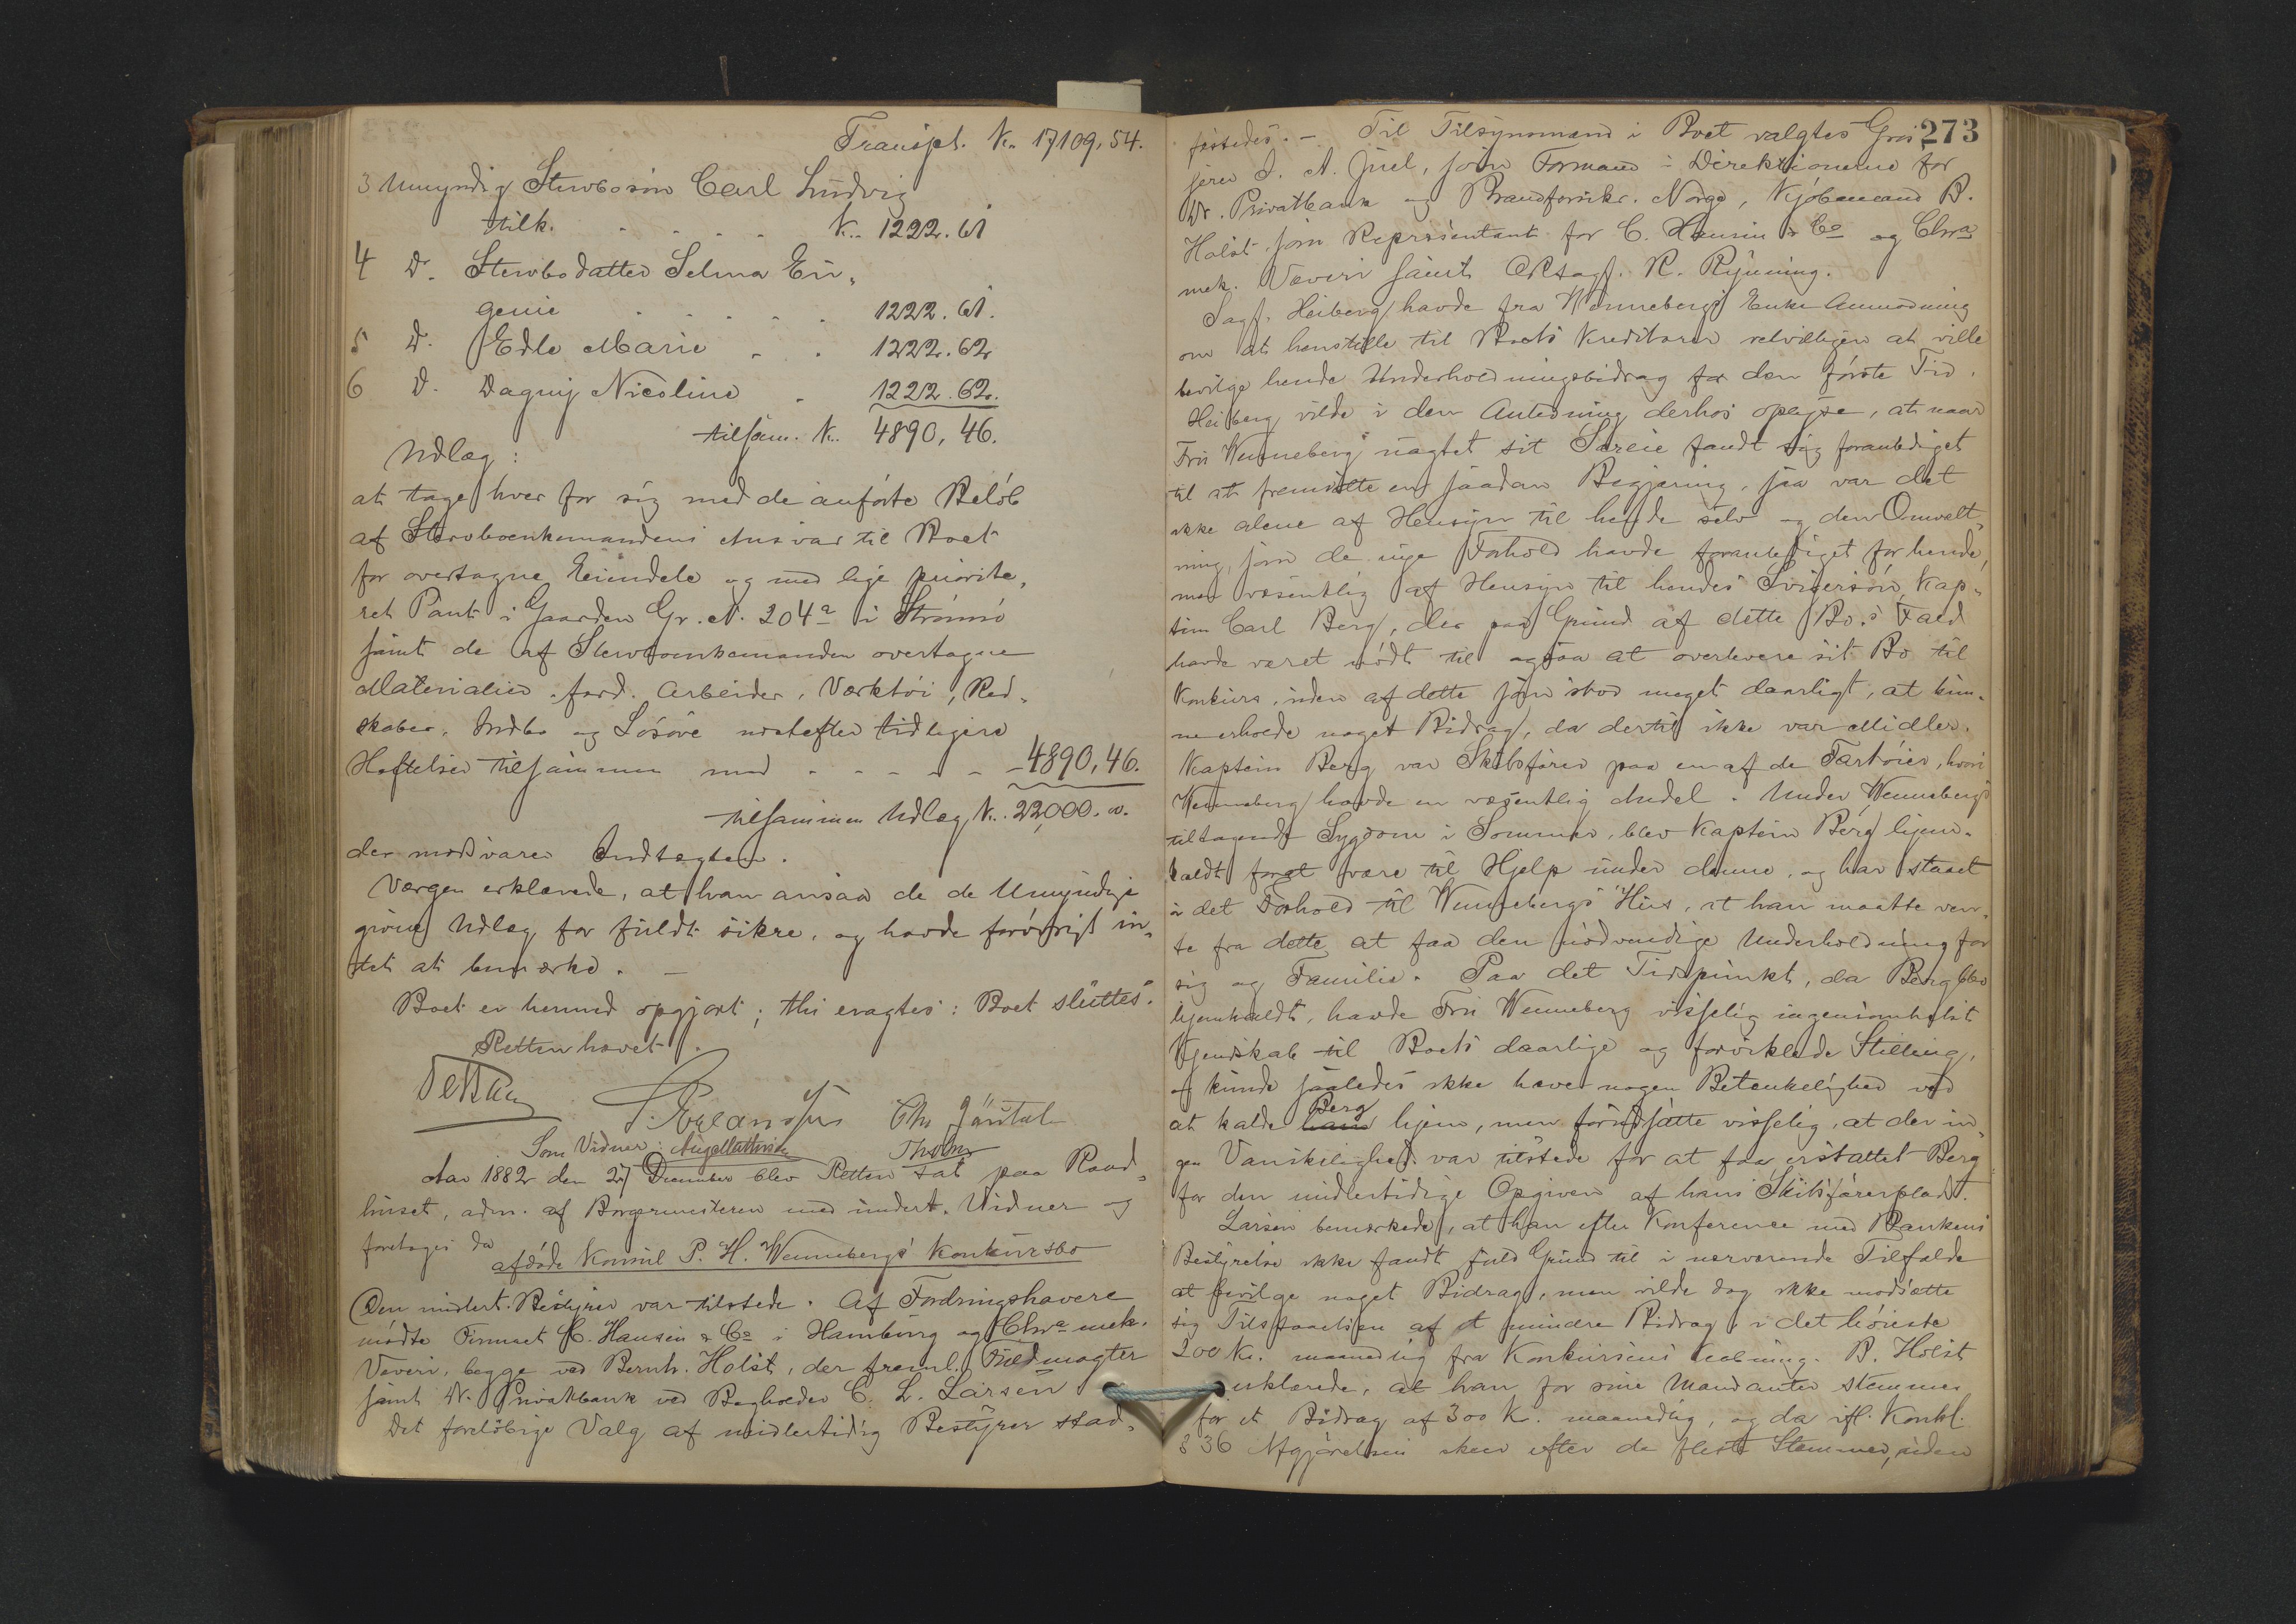 Transpt. Kr. 17109,54.
3 Umyndig Stervbosøn Carl Ludvig
tilk. . . . . Kr. 1222.61
4 Do. Stervbodatter Selma Eu„
genie . . . . . 1222.61.
5 D. Edle Marie . . 1222.62
6 D. Dagny Nicoline . 1222.62.
tilsam. Kr. 4890,46.
Udlæg:
at tage hver for sig med de anførte Beløb
af Stervboenkemandens Ansvar til Boet
for overtagne Eiendele og med lige priorite„
ret Pant i Gaarden Gr. N. 204a i Strømsø
samt de af Stervboenkemanden overtagne
Materialier, færd. Arbeider, Værktøi, Red„
skaber, Indbo og Løsøre næstefter tidligere
Heftelser tilsammen med - - - - - 4890,46.
tilsammen Udlæg Kr. 22,000. 00.
der modsvarer Indtægten.
Værgen erklærede, at han ansaa de de Umyndige
givne Udlæg for fuldt sikre, og havde forøvrigt in„
tet at bemærke. —
Boet er hermed opgjort; thi eragtes: Boet sluttes.
Retten hævet.
Som Vidner:
Aar 1882 den 27 December blev Retten sat paa Raad„
huset, adm. af Borgermesteren med undert. Vidner og
foretages da
afdøde Konsul P. H. Wennebergs Konkursbo
Den midlert. Bestyrer var tilstede. Af Fordringshavere
mødte Firmaet C. Hansen & Co i Hamburg og Chra mek.
Væveri, begge ved Bernh. Holst, der freml. Fuldmagter
samt N. Privatbank ved Bogholder C. L. Larsen
Det foreløbige Valg af midlertidig Bestyrer stad„
273
fæstedes. — Til Tilsynsmænd i Boet valgtes Gros„
serer I. A. Juel, som Formand i Direktionerne for
N. Privatbank og Brandforsikr. Norge, Kjøbmand B.
Holst som Repræsentant for C. Hansen & Co og Chra
mek. Væveri samt ORsagf. R. Rynning.
Sagf. Heiberg havde fra Wennebergs Enke Anmodning
om at henstille til Boets Kreditorer velvilligen at ville
bevilge hende Underholdningsbidrag for den første Tid.
Heiberg vilde i den Anledning derhos oplyse, at naar
Fru Wenneberg uagtet sit Særeie fandt sig foranlediget
til at fremsætte en saadan Begjæring, saa var det
ikke alene af Hensyn til hende selv og den Omvælt„
ning, som de nye Forhold havde foranlediget for hende,
men væsentlig af Hensyn til hendes Svigersøn, Kap„
tein Carl Berg, der paa Grund af dette Bo.s Fald
havde været nødt til ogsaa at overlevere sit Bo til
Konkurs, uden af dette som stod meget daarligt, at kun„
ne erholde noget Bidrag, da dertil ikke var Midler.
Kaptein Berg var Skibsfører paa en af de Fartøier, hvori
Wenneberg havde en væsentlig Andel. Under Wennebergs
tiltagende Sygdom i Sommer, blev Kaptein Berg hjem„
kaldt for at være til Hjelp under denne, og har staaet
i det Forhold til Wennebergs Hus, at han maatte ven„
te fra dette at faa den nødvendige Underholdning for
sig og Familie. Paa det Tidspunkt, da Berg blev
hjemkaldt, havde Fru Wenneberg visselig ingensomhelst
Kjendskab til Boets daarlige og forviklede Stilling,
og kunde saaledes ikke have nogen Betænkelighed ved
at kalde Berg hjem, men forudsatte visselig, at der in„
gen Vanskelighed var tilstede for at faa erstattet Berg
for den midlertidige Opgiven af hans Skibsførerplads.
Larsen bemærkede, at han efter Konference med Bankens
Bestyrelse ikke fandt fuld Grund til i nærværende Tilfælde
at bevilge noget Bidrag, men vilde dog ikke modsætte
sig Tilstaaelsen af et mindre Bidrag, i det høieste
200 Kr. maanedlig fra Konkursens Aabning. B. Holst
erklærede, at han for sine Mandanter stemmer
for et Bidrag af 300 Kr. maanedlig, og da ifl. Konkl.
§ 36 Afgjørelsen sker efter de fleste Stemmer, uden